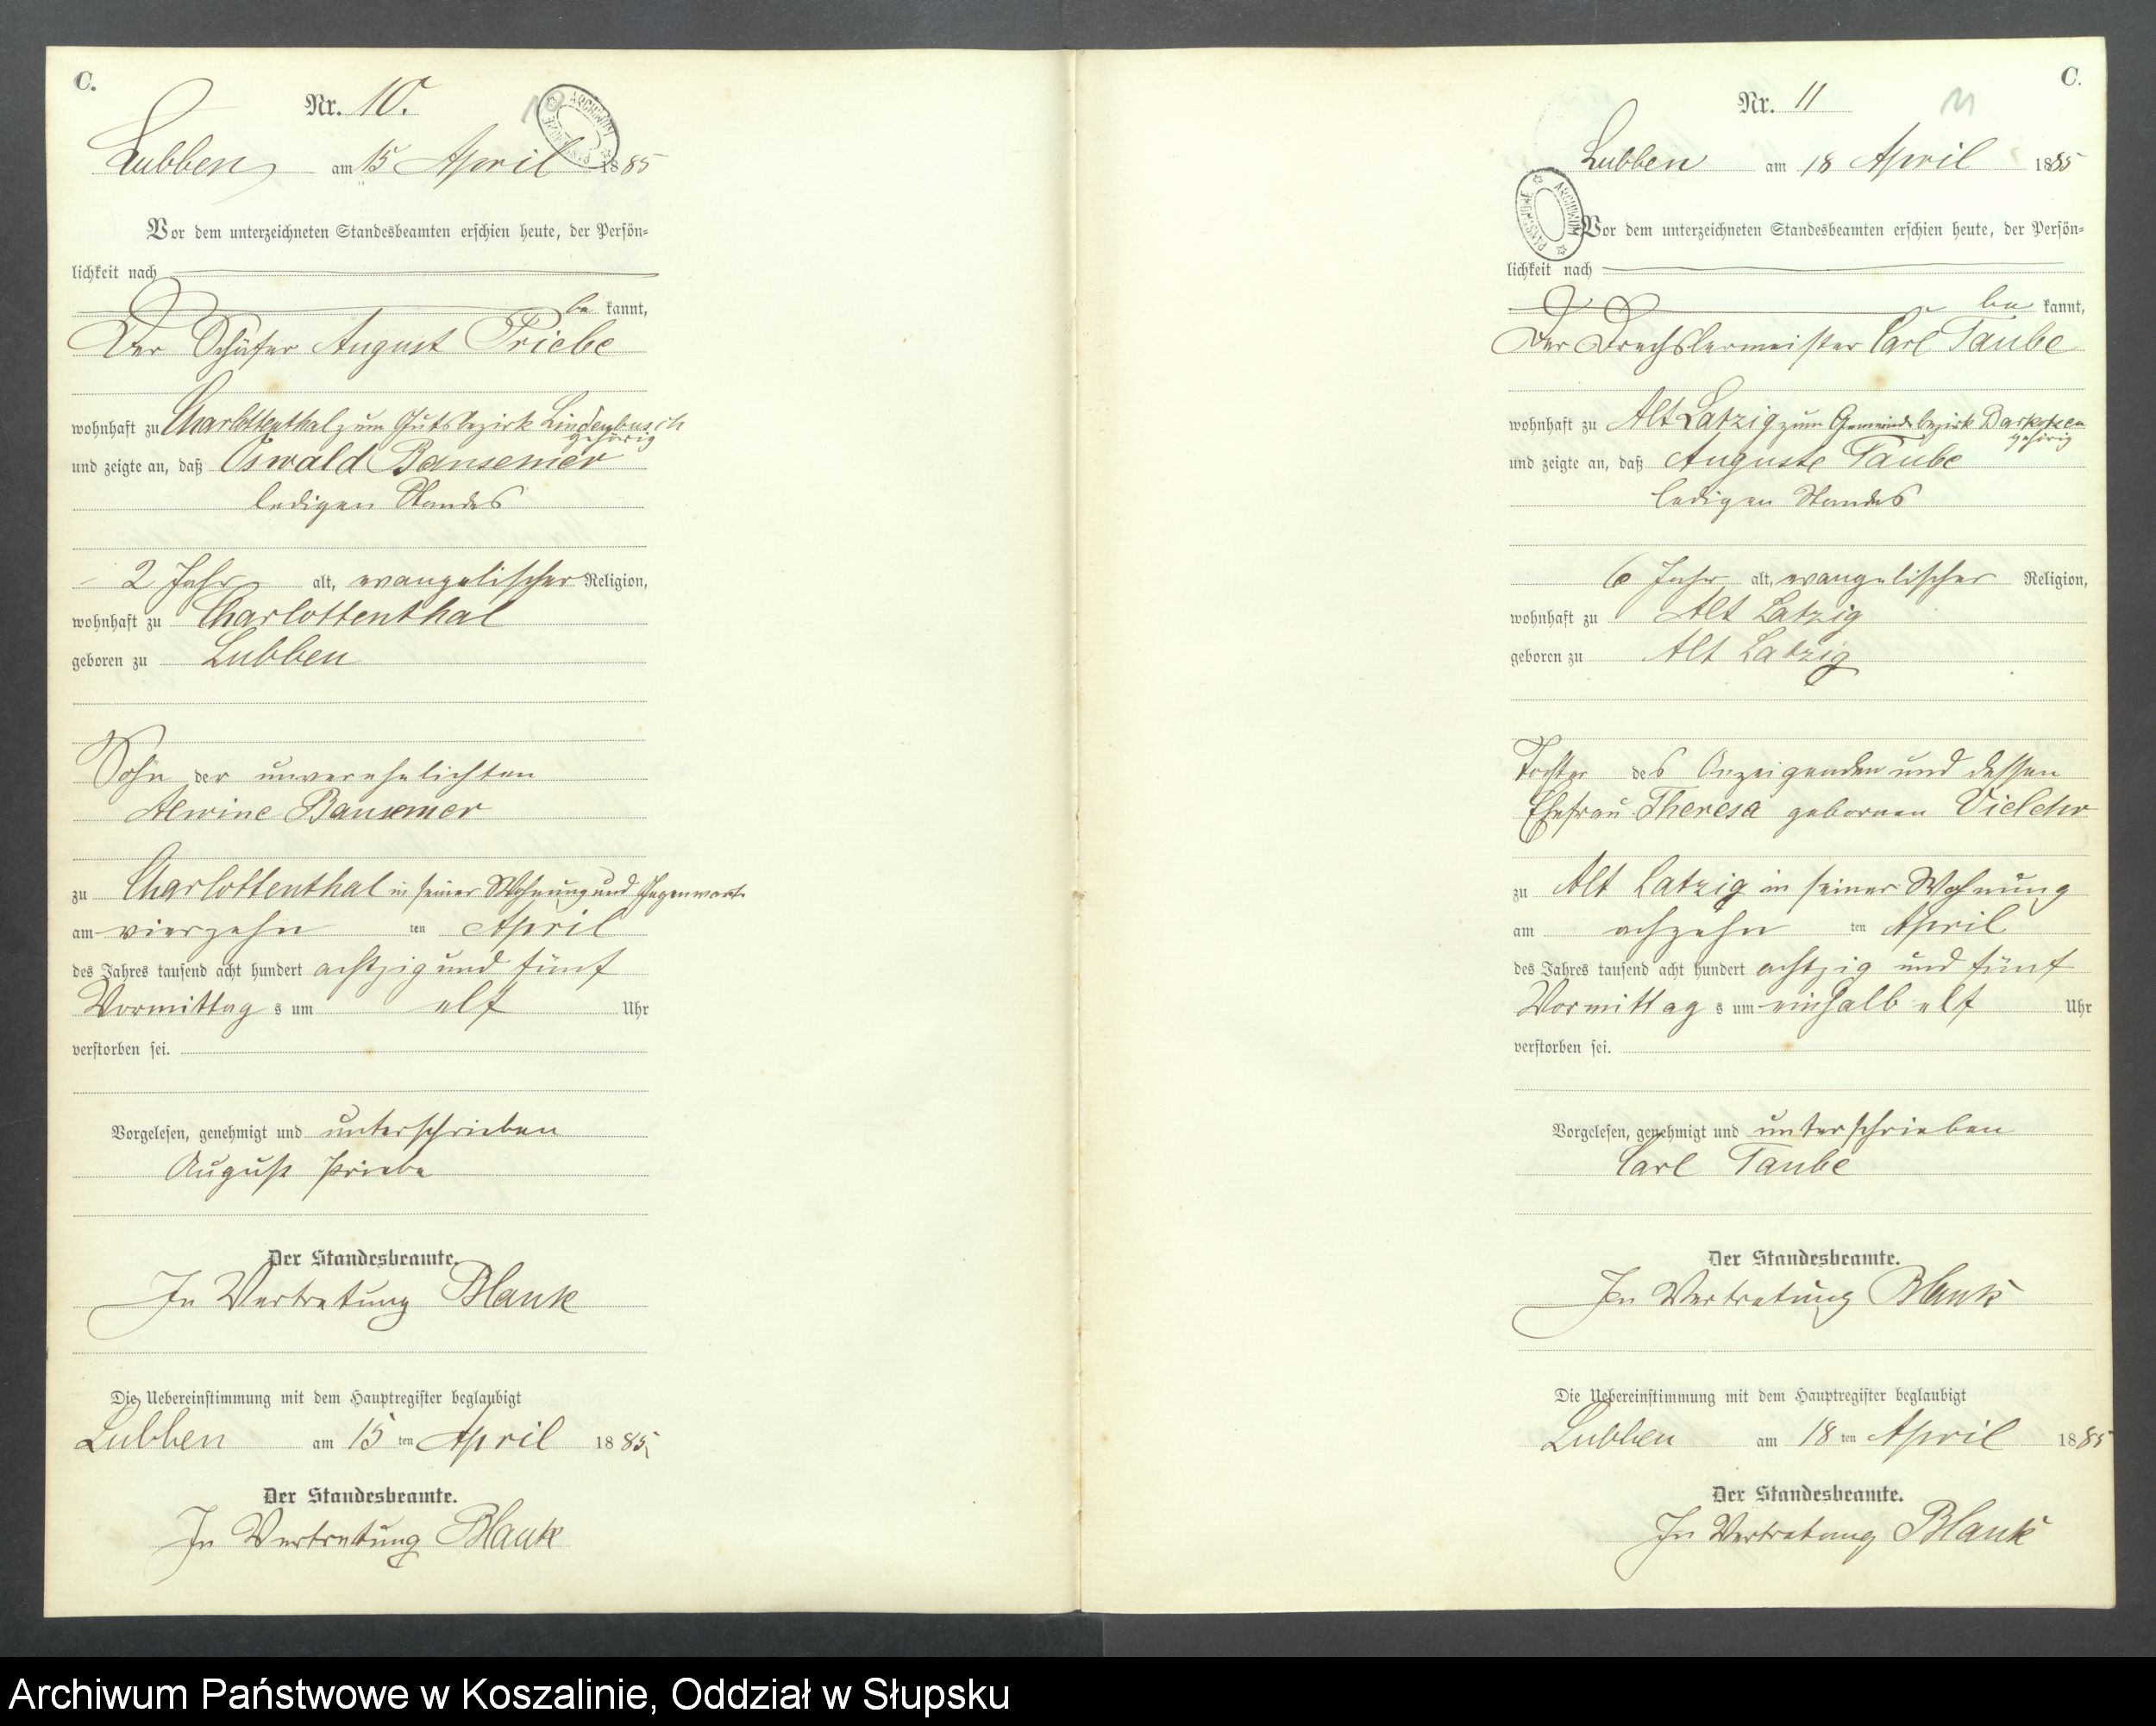 C.
Nr. 10.
Lubben am 15 April 1885
ARCHIWUM PAŃSTWOWE
Vor dem unterzeichneten Standesbeamten erschien heute, der Persön-
lichkeit nach
be kannt,
Der Schäfer August Priebe
wohnhaft zu Charlottenthal zum Gutsbezirk Lindenbusch
gehörig
und zeigte an, daß Oswald Bansemer
ledigen Standes
2 Jahr alt, evangelischer Religion,
wohnhaft zu Charlottenthal
geboren zu Lubben
Sohn der unverehelichten
Alwine Bansemer
zu Charlottenthal in seiner Wohnung und Gegenwart
am vierzehn ten April
des Jahres tausend acht hundert achtzig und fünf
Vormittag s um elf Uhr
verstorben sei.
Vorgelesen, genehmigt und unterschrieben
August Priebe
Der Standesbeamte.
In Vertretung Blank
Die Uebereinstimmung mit dem Hauptregister beglaubigt
Lubben am 15 ten April 1885
Der Standesbeamte.
In Vertretung Blank
C.
Nr. 11
11
Lubben am 18 April 1885
ARCHIWUM PAŃSTWOWE
Vor dem unterzeichneten Standesbeamten erschien heute, der Persön-
lichkeit nach
be kannt,
Der Drechslermeister Carl Taube
wohnhaft zu Alt Latzig zum Gemeindebezirk
gehörig
und zeigte an, daß Auguste Taube
ledigen Standes
6 Jahr alt, evangelischer Religion,
wohnhaft zu Alt Latzig
geboren zu Alt Latzig
Tochter des Anzeigenden und dessen
Ehefrau Theresa gebornen Vielehr
zu Alt Latzig in seiner Wohnung
am achzehn ten April
des Jahres tausend acht hundert achtzig und fünf
Vormittag s um einhalb elf Uhr
verstorben sei.
Vorgelesen, genehmigt und unterschrieben
Carl Taube
Der Standesbeamte.
In Vertretung Blank
Die Uebereinstimmung mit dem Hauptregister beglaubigt
Lubben am 18 ten April 1885
Der Standesbeamte.
In Vertretung Blank
Archiwum Państwowe w Koszalinie, Oddział w Słupsku